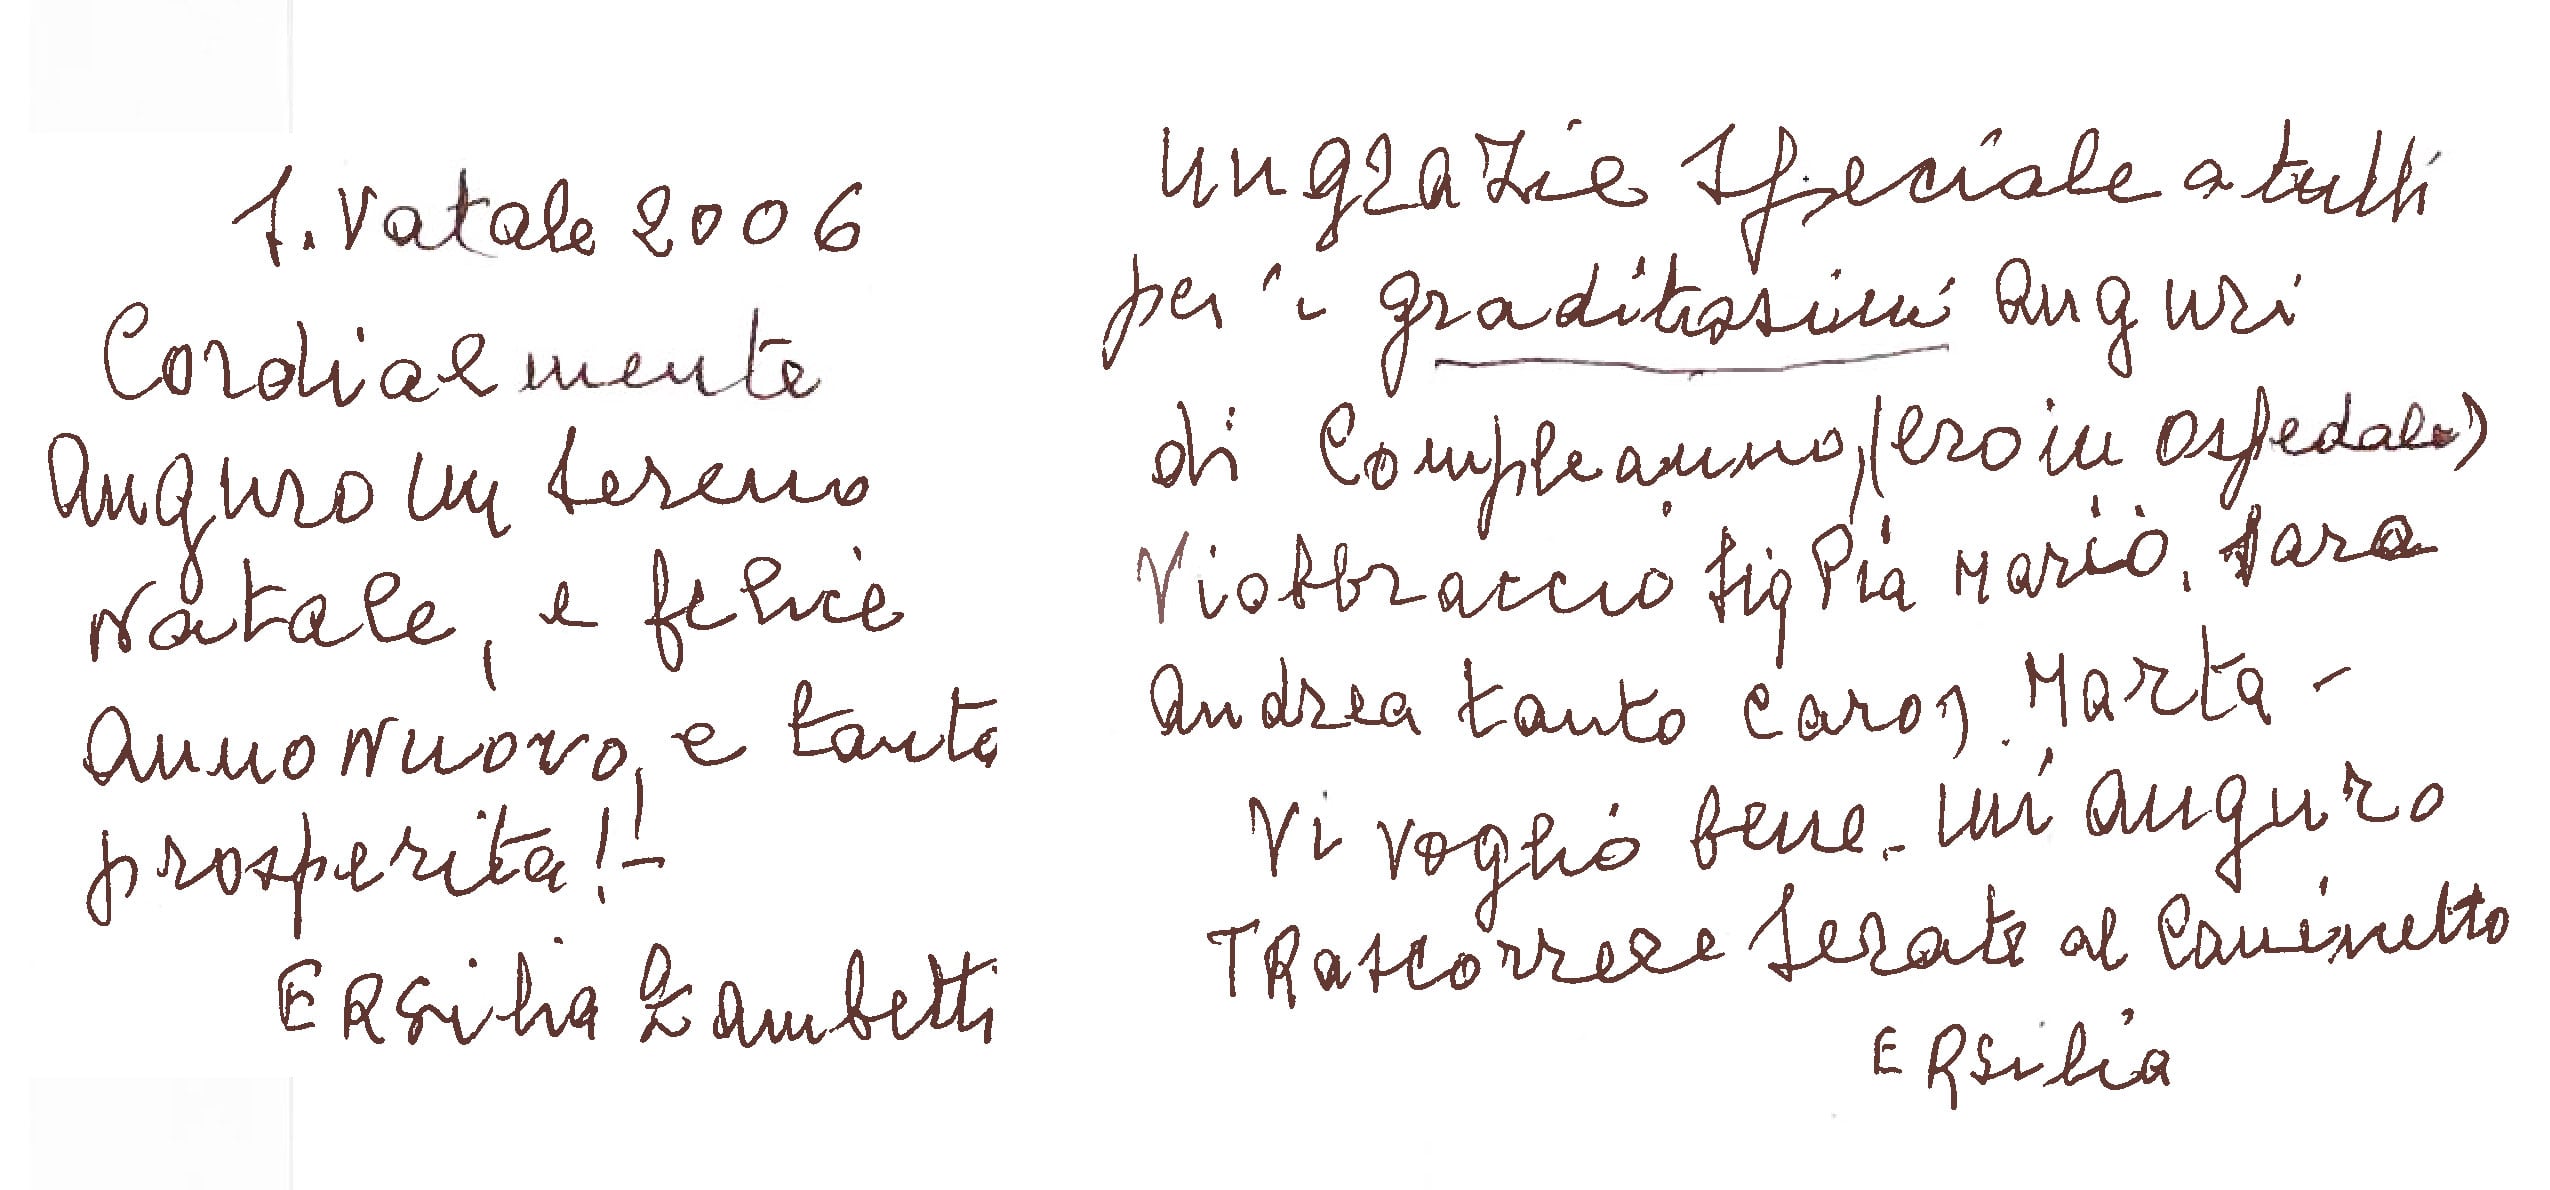 S. Natale 2006
Cordialmente
Auguro un sereno
Natale, e felice
Anno Nuovo, e tanta
prosperità!-
ERsilia Zambetti
un grazie speciale a tutti
per i graditissimi auguri
di Compleanno, (ero in ospedale)
Vi abbraccio Sig Pia Mario, Sara
Andrea tanto caro, Marta -
Vi voglio bene. Mi auguro
TRascorrere serate al Caminetto
ERsilia